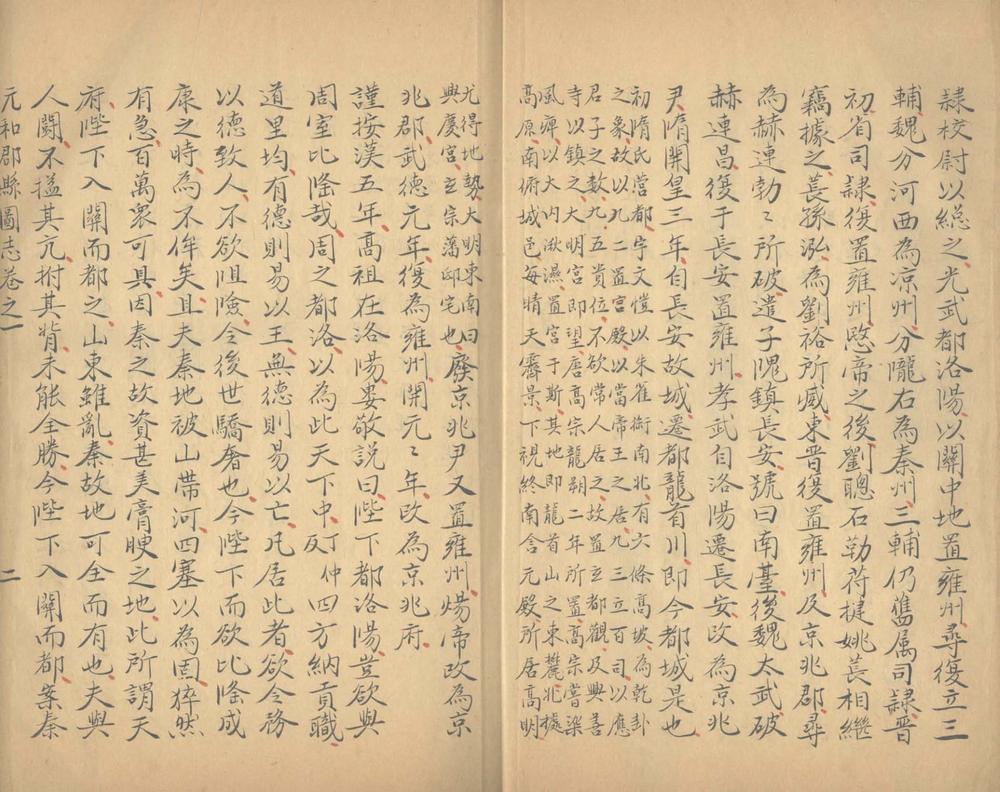 隸校尉以總之光武都洛陽以關中地置雍州尋復立三
輔魏分河西為凉州分隴右為秦州三輔仍舊属司隸晋
初省司隸復置雍州愍帝之後劉聰石勒苻揵姚萇相繼
竊據之萇孫泓為劉裕所滅東晋復置雍州及京兆郡尋
為赫連勃〻所破遣子隗鎮長安號曰南臺後魏太武破
赫連昌復于長安置雍州孝武自洛陽遷長安改為京兆
尹隋開皇三年自長安故城遷都龍首川即今都城是也
初隋氏營都宇文愷以朱雀街南北有六條高坡為乾卦
之象故以九二置宮殿以當帝王之居九三立百司以應
君子之數九五貴位不欲常人居之故置立都觀及興善
寺以鎮之大明宮即望唐高宗龍朔二年所置高宗嘗染
風痺以大內湫濕置宮于斯其地即龍首山之東麓北據
高原南俯城邑每晴天霽景下視終南含元殿所居高明
尤得地勢大明東南曰
興慶宮立宗藩邸宅也
廢京兆尹又置雍州煬帝改為京
兆郡武德元年復為雍州開元〻年改為京兆府
謹按漢五年高祖在洛陽婁敬説曰陛下都洛陽豈欲與
周室比隆哉周之都洛以為此天下中反丁仲四方納貢職
道里均有德則易以王無德則易以亡凡居此者欲令務
以德致人不欲阻險令後世驕奢也今陛下而欲比隆成
康之時為不侔矣且夫秦地被山帶河四塞以為固猝然
有急百萬衆可具因秦之故資甚美膏腴之地此所謂天
府陛下入關而都之山東雖亂秦故地可全而有也夫與
人鬬不搤其亢拊其背未能全勝今陛下入關而都案秦
元和郡縣圖志卷之一 二